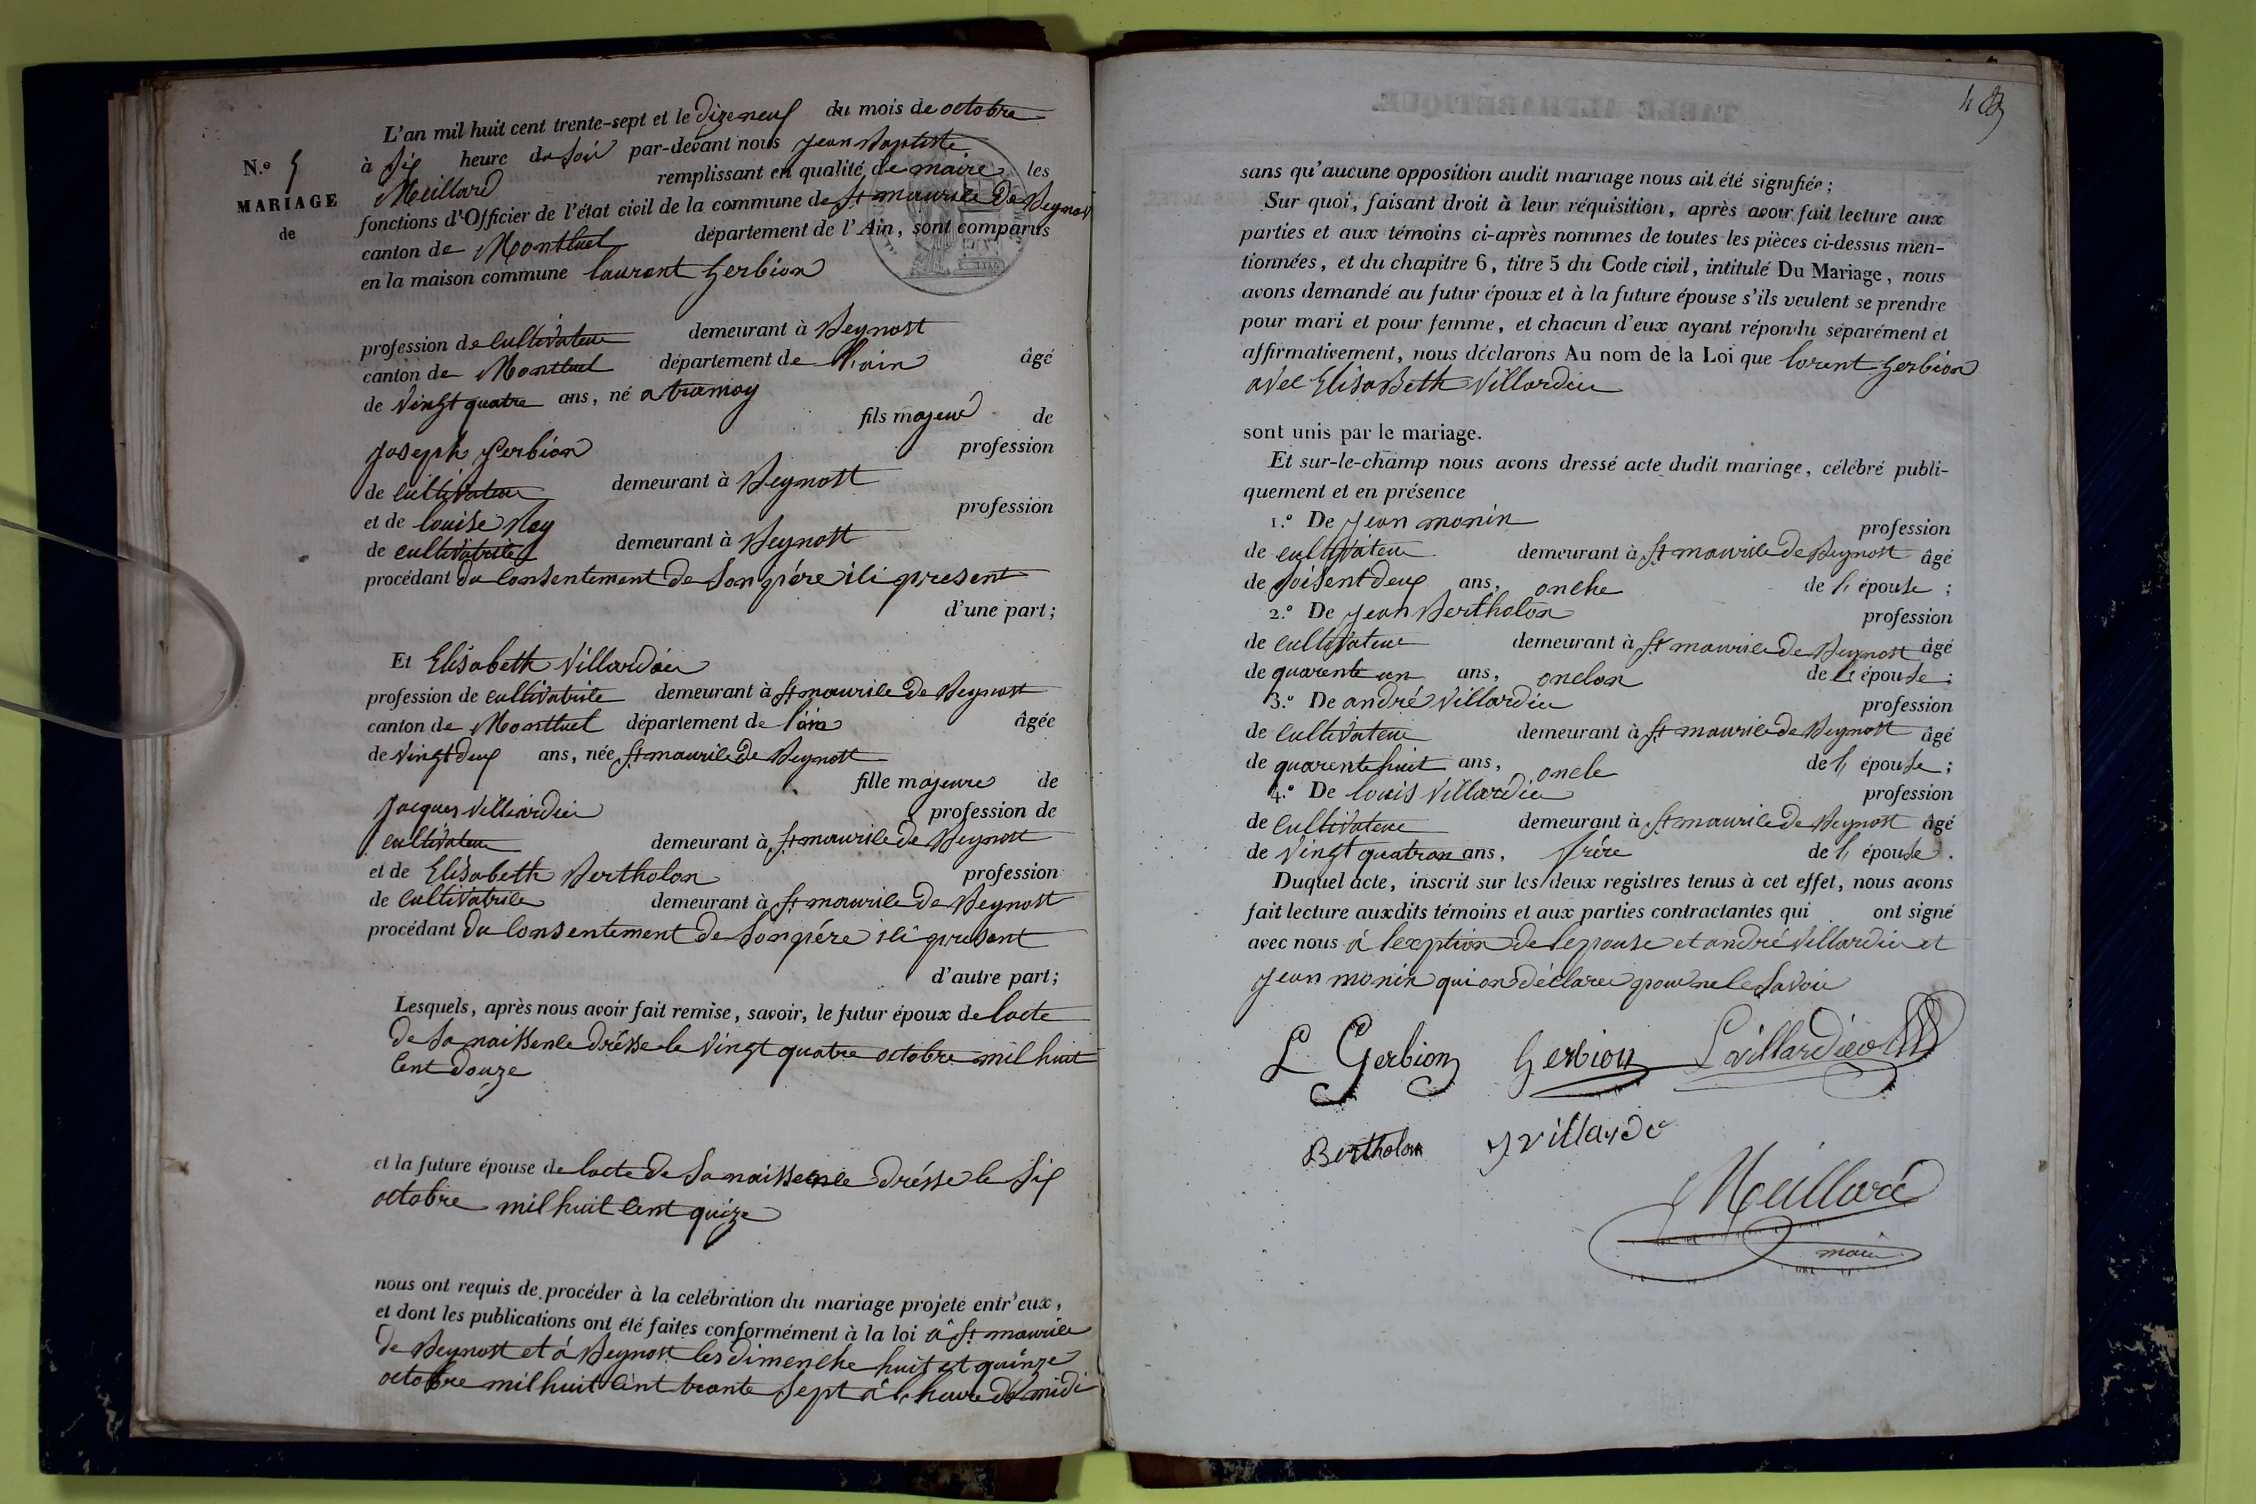 L'an mil huit cent trente-sept et le dizeneuf du mois de octobre
à six heure du soir par-devant nous jean Baptiste
Meillard remplissant en qualité de maire les
fonctions d'Officier de l'état civil de la commune de St maurice de Beynost
canton de Montluel département de l'Ain, sont comparus
en la maison commune laurent Gerbion
N.º 5
MARIAGE
de
profession de cultivateur demeurant à Beynost
canton de Montluel département de l'ain âgé
de vingt quatre ans, né a tramoy
fils majeur de
joseph Gerbion profession
de cultivateur demeurant à Beynost
et de louise Noy profession
de cultivatrice demeurant à Beynost
procédant du consentement de son père ici present
d'une part;
Et Elisabeth villardieu
profession de cultivatrice demeurant à St maurice de Beynost
canton de Montluel département de l'ain âgée
de vingt deux ans, née St maurice de Beynost
fille majeure de
jacques villiardieu profession de
cultivateur demeurant à St maurice de Beynost
et de Elisabeth Bertholon profession
de cultivatrice demeurant à St maurice de Beynost
procédant du consentement de son père ici present
d'autre part;
Lesquels, après nous avoir fait remise, savoir, le futur époux de lacte
de sa naissence drésse le vingt quatre octobre mil huit
cent douze
et la future épouse de lacte de sa naissence drésse le six
octobre mil huit cent quize
nous ont requis de procéder à la celébration du mariage projeté entr'eux,
et dont les publications ont été faites conformément à la loi à St maurice
de Beynost et à Beynost les dimenche huit et quinze
octobre mil huit cent trante sept à l, heure de midi
sans qu'aucune opposition audit mariage nous ait été signifiée;
Sur quoi, faisant droit à leur réquisition, après avoir fait lecture aux
parties et aux témoins ci-après nommes de toutes les pièces ci-dessus men-
tionnées, et du chapitre 6, titre 5 du Code civil, intitulé Du Mariage, nous
avons demandé au futur époux et à la future épouse s'ils veulent se prendre
pour mari et pour femme, et chacun d'eux ayant répondu séparément et
affirmativement, nous déclarons Au nom de la Loi que lorent Gerbion
avec Elisabeth villardieu
sont unis par le mariage.
Et sur-le-champ nous avons dressé acte dudit mariage, célébré publi-
quement et en présence
1.º De jean monin profession
de cultivateur demeurant à St maurice de Beynost âgé
de soisent deux ans, onche de l, épouse;
2.º De jean Bertholon profession
de cultivateur demeurant à St maurice de Beynost âgé
de quarente un ans, onclon de l, épouse;
3.º De andré villardieu profession
de cultivateur demeurant à St maurice de Beynost âgé
de quarente huit ans, oncle de l, épouse;
4.º De louis villardieu profession
de cultivateur demeurant à St maurice de Beynost âgé
de vingt quatran ans, frére de l, épouse.
Duquel acte, inscrit sur les deux registres tenus à cet effet, nous avons
fait lecture auxdits témoins et aux parties contractantes qui ont signé
avec nous à lexption de lepouse et andré villardieu et
jean monin qui on déclarer pour ne le savoir
L Gerbion Gerbion L villardieu
Bertholon J villarde
Meillard
maire